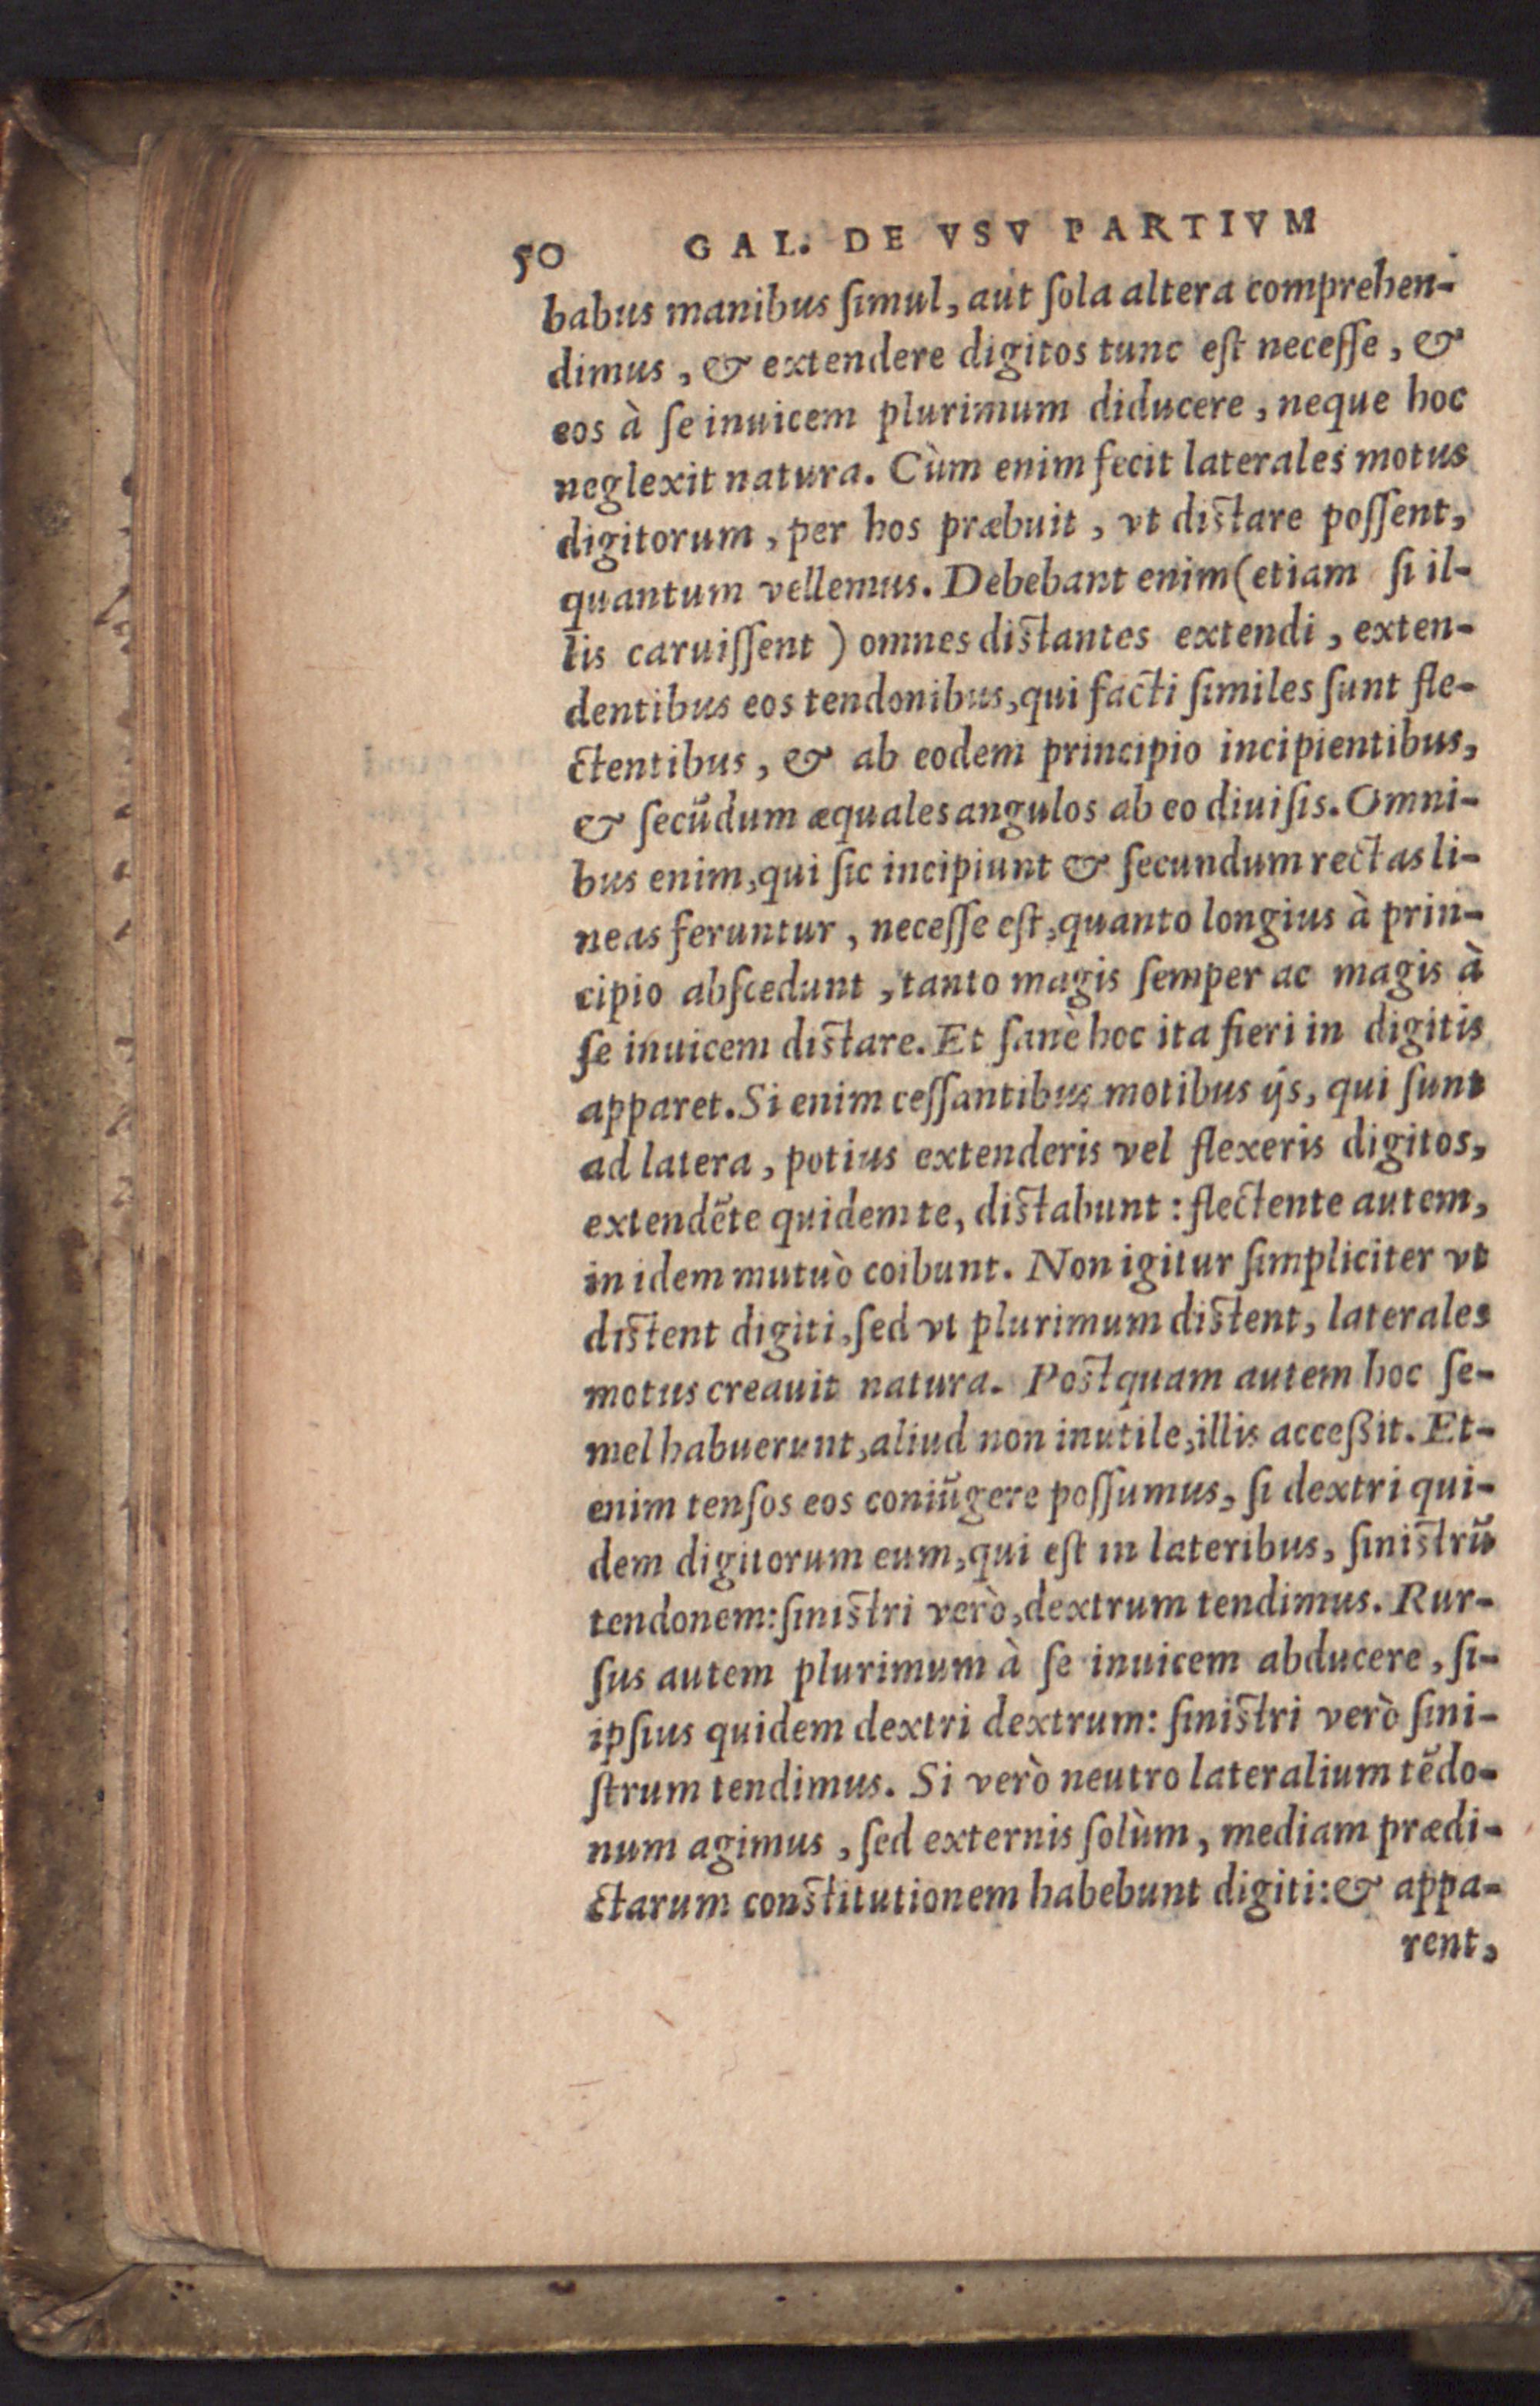 50 GAL. DE VSV PARTIVM
babus manibus ſimul, aut ſola altera comprehen-
dimus, & extendere digitos tunc eſt neceſſe, &
eos à ſe inuicem plurimum diducere, neque hoc
neglexit natura. Cùm enim fecit laterales motus
digitorum, per hos præbuit, vt diſtare poſſent,
quantum vellemus. Debebant enim (etiam ſi il-
lis caruiſſent) omnes diſtantes extendi, exten-
dentibus eos tendonibus, qui facti ſimiles ſunt fle-
ctentibus, & ab eodem principio incipientibus,
& ſecũdum æquales angulos ab eo diuiſis. Omni-
bus enim, qui ſic incipiunt & ſecundum rectas li-
neas feruntur, neceſſe eſt, quanto longius à prin-
cipio abſcedunt, tanto magis ſemper ac magis à
ſe inuicem diſtare. Et ſanè hoc ita fieri in digitis
apparet. Si enim ceſſantibus motibus ijs, qui ſunt
ad latera, potius extenderis vel flexeris digitos,
extendẽte quidem te, diſtabunt: flectente autem,
in idem mutuò coibunt. Non igitur ſimpliciter vt
diſtent digiti, ſed vt plurimum diſtent, laterales
motus creauit natura. Poſtquam autem hoc ſe-
mel habuerunt, aliud non inutile, illis acceßit. Et-
enim tenſos eos coniũgere poſſumus, ſi dextri qui-
dem digitorum eum, qui eſt in lateribus, ſiniſtrũ
tendonem: ſiniſtri verò, dextrum tendimus. Rur-
ſus autem plurimum à ſe inuicem abducere, ſi-
ipſius quidem dextri dextrum: ſiniſtri verò ſini-
ſtrum tendimus. Si verò neutro lateralium tẽdo-
num agimus, ſed externis ſolùm, mediam prædi-
ctarum conſtitutionem habebunt digiti: & appa-
rent,